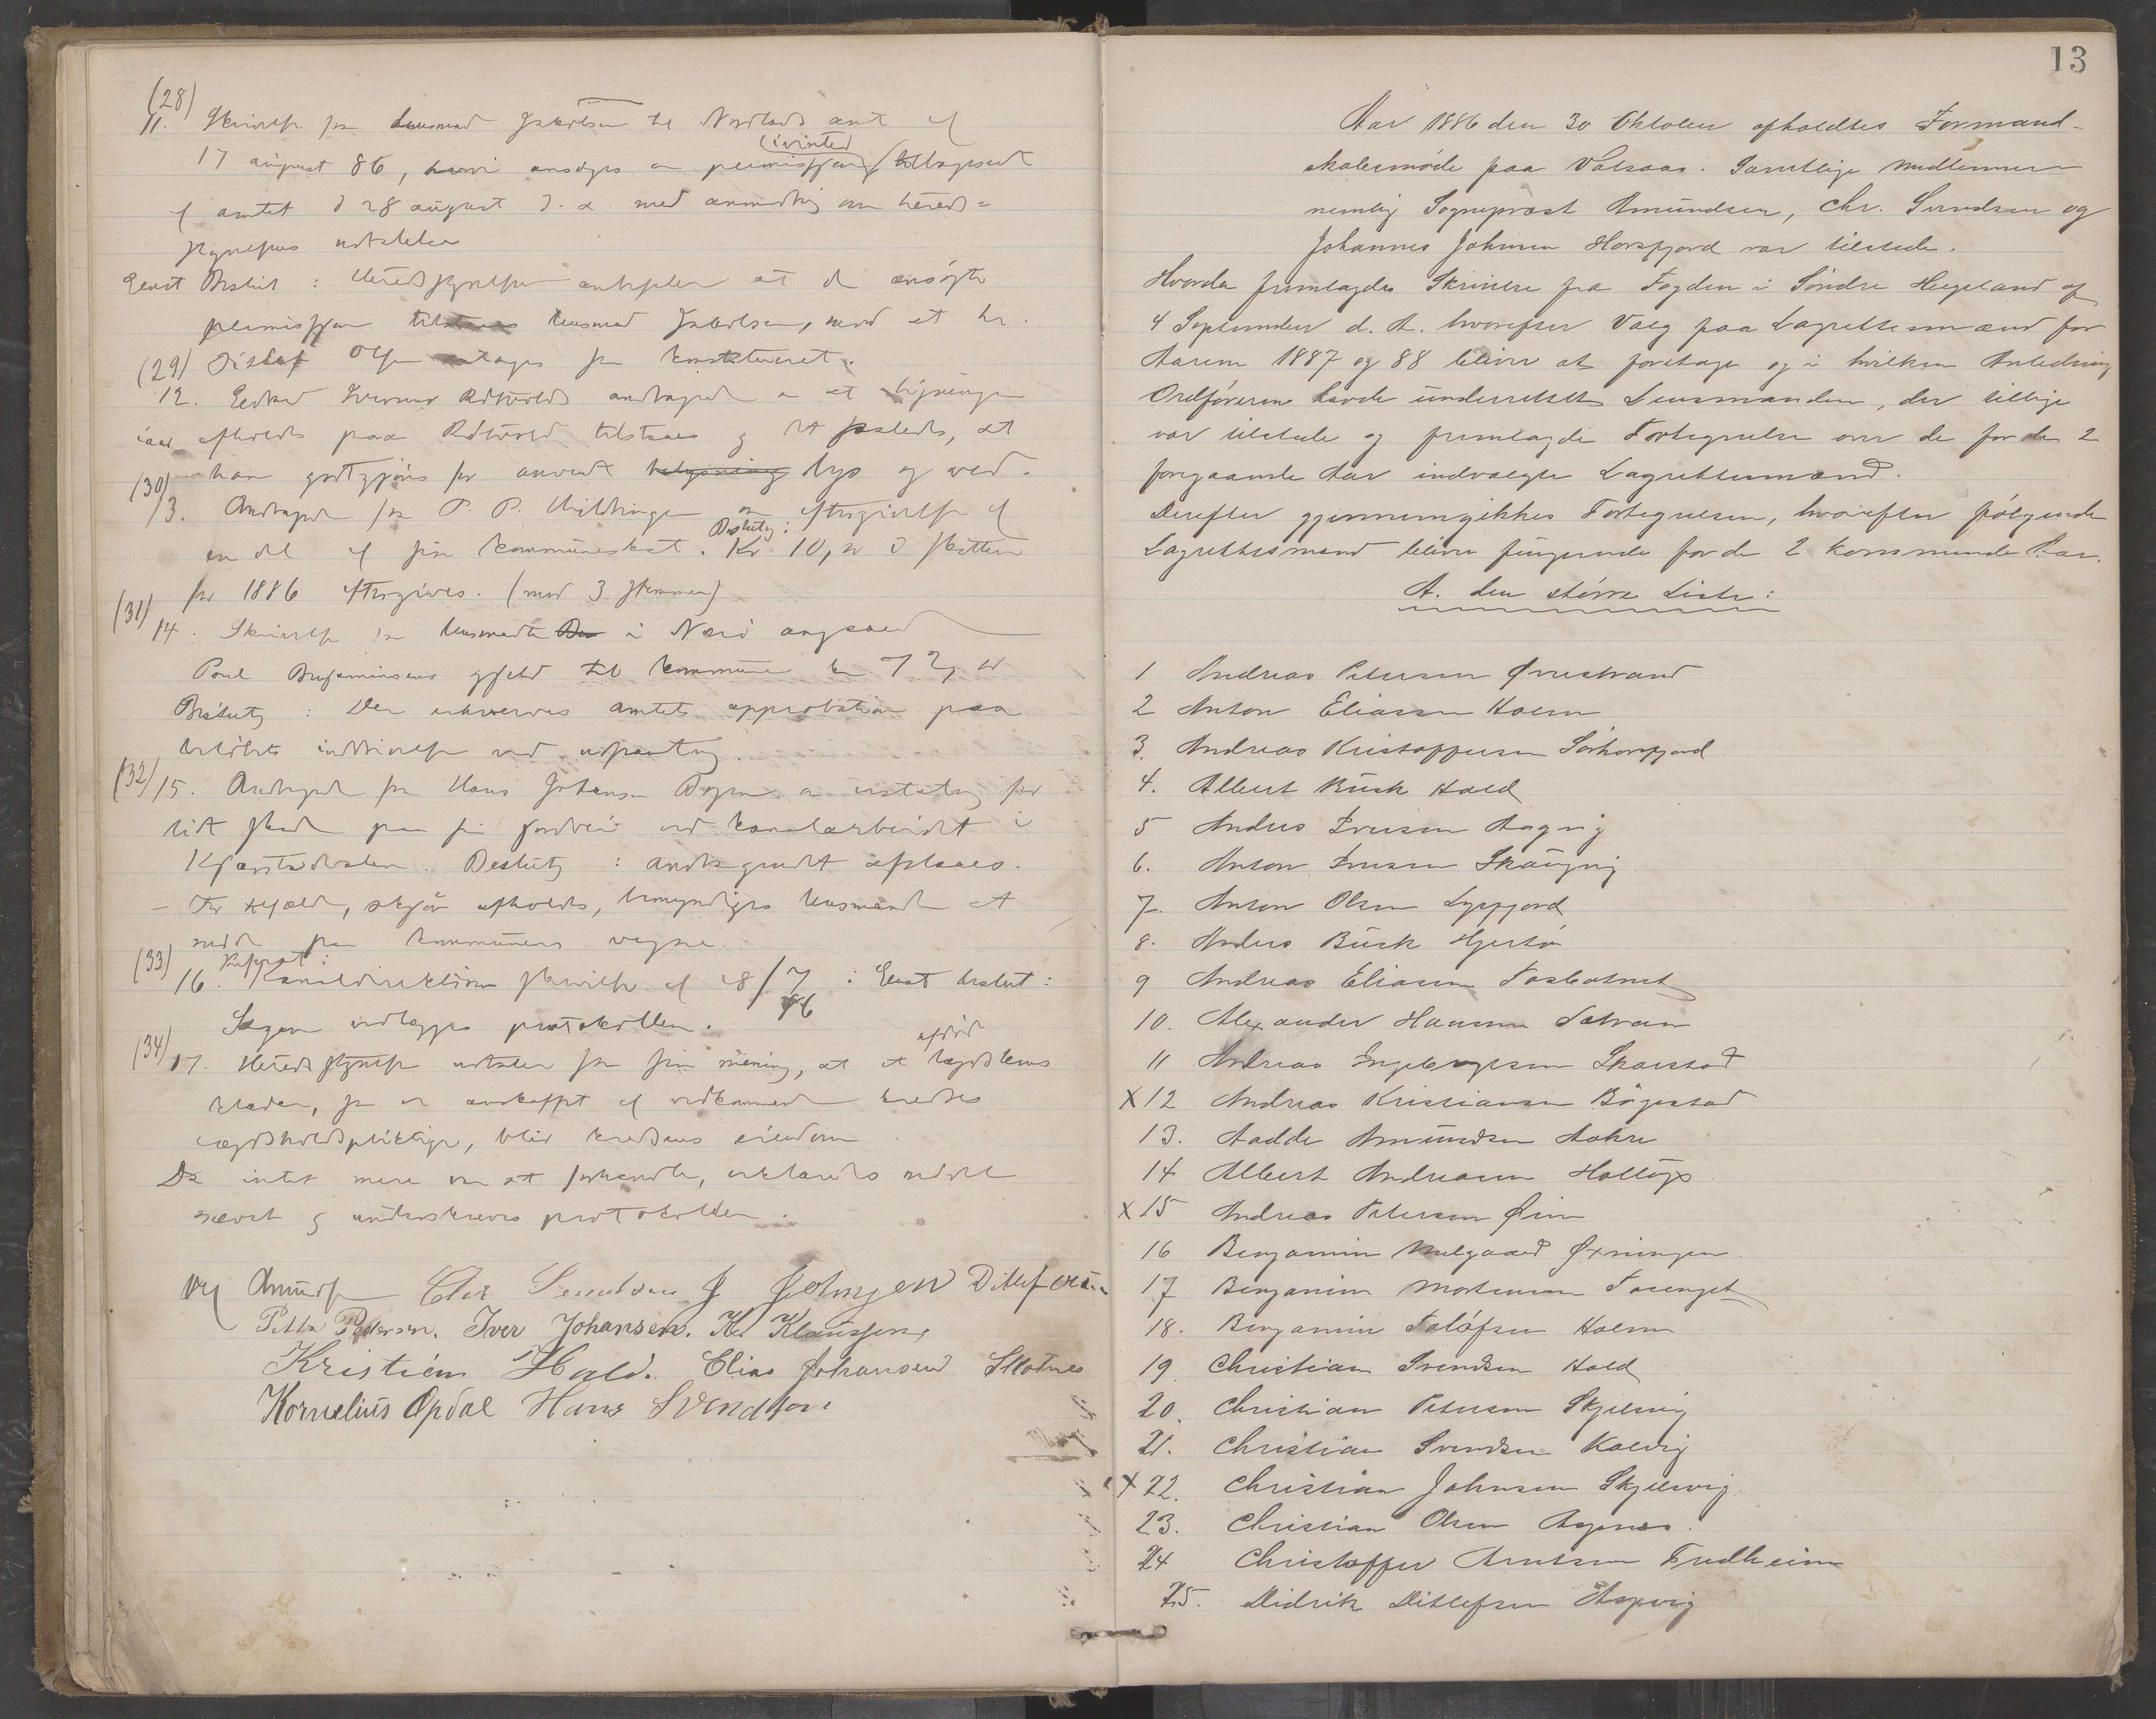 (28)
11. Skrivelse fra lensmand Jakobsen til Nordlands amt af
(i vinter)
17 august 86, hvori ansøges om permission tilbagesendt
af amtet d 28 august d. a. med anmodning om hereds=
styrelsens udtalelse
Eenst. Beslut: Heredsstyrelsen anbefaler at den ansøgte
permission tilstaaes lensmand Jakobsen, mod at hr.
(29) Ditlef Olsen antages som konstitueret.
12. andragende om at ligningen
iaar afholdt paa tilstaaes og det, at
(30) han godtgjøres for anvendt lys og ved.
13. Andragende fra P. P. om eftergivelse af
Beslutg:
en del af sin kommuneskat. Kr 10, av d skatten
for 1886 eftergives. (mod 3 stemmer)
(31) 14. Skrivelse fra lensmanden i Nærø angaaende
Poul Benjaminsens gjæld til kommunen kr 72,
Beslutg: Der erhverves amtets approbation paa
beløbets inddrivelse ved udpantng.
(32) 15. Andragende fra Hans Johansen om erstatng for
lidt skade paa sin jordvei ved kanalarbeidet i
Beslutg: andragendet afslaaes.
– Før tilfælde, skjøn afholdes, bemyndiges lensmanden at
møde paa kommunens vegne.
(33) Referat:
16. Kanaldirektørens skrivelse af 28/7 86: Eenst beslut:
Sagen vedlægges protokollen.
(34) afdød
17. Heredsstyrelsen udtaler som sin mening, at et lægdslems
klæder, som er anskaffet af vedkommende kredses
lægdsholdspliktige, blir kredsens eiendom
Da intet mere var at forhandle, erklæredes mødet
hævet og underskreves protokollen.
Amundsen Chr Svendsen J Johnsen Ditlef Olsen
Petter Pedersen. Iver Johansen. Kr Klaussen,
Kristian Hald. Elias Johansen Slotnes
Kornelius Opdal Hans Svendsen
13
Aar 1886 den 30 Oktober afholdtes Formand-
skabsmøde paa Vatsaas. Samtlige Medlemmer
nemlig Sogneprest Amundsen, Chr. Svendsen og
Johannes Johnsen Horsfjord var tilstede.
Hvorda fremlagdes Skrivelse fra Fogden i Søndre Helgeland af
4 September d. A. hvorefter Valg paa Lagrettesmænd for
Aarene 1887 og 88 bliver at foretage og i hvilken Anledning
Ordføreren havde underrettet Lensmanden, der tillige
var tilstede og fremlagde Fortegnelse over de for de 2
foregaaende Aar indvalgte Lagrettesmænd.
Derefter gjennemgikkes Fortegnelsen, hvorefter følgende
Lagrettesmænd bliver fungerende for de 2 kommende Aar.
A. den større Liste:
1 Andreas Petersen Øvrestrand
2 Anton Eliassen Holm
3. Andreas Kristoffersen Sørhorsfjord
4. Albert Busk Hald
5 Anders Iversen Aagvig
6. Anton Iversen Skaugvig
7. Anton Olsen Lysfjord
8. Anders Busk Hjertø
9 Andreas Eliassen Fosbotnet
10. Alexander Hansen Satran
11 Andreas Ingebrigtsen Skarstad
X 12 Andreas Kristiansen Bøgestad
13. Aadde Amundsen Aakre
14 Albert Andreassen Holtigs
X 15 Andreas Petersen Øien
16 Benjamin Melgaard Øxningen
17 Benjamin Mortensen Fosenget
18. Benjamin Falofsen Holm
19 Christian Svendsen Hald
20. Christian Petersen Skjelvig
21. Christian Svendsen Kalvig
X 22. Christian Johnsen Skjelvig
23. Christian Olsen Agnes.
24 Christoffer Arntsen Fredheim
25. Didrik Ditlefsen Aspvig